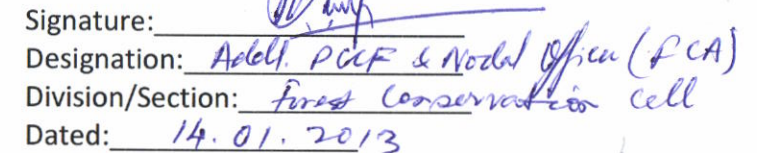 Signature:
Designation: Addl. PCCF & Nodal Officer (FCA)
Division/Section: Forest Conservation Cell
Dated: 14.01.2013